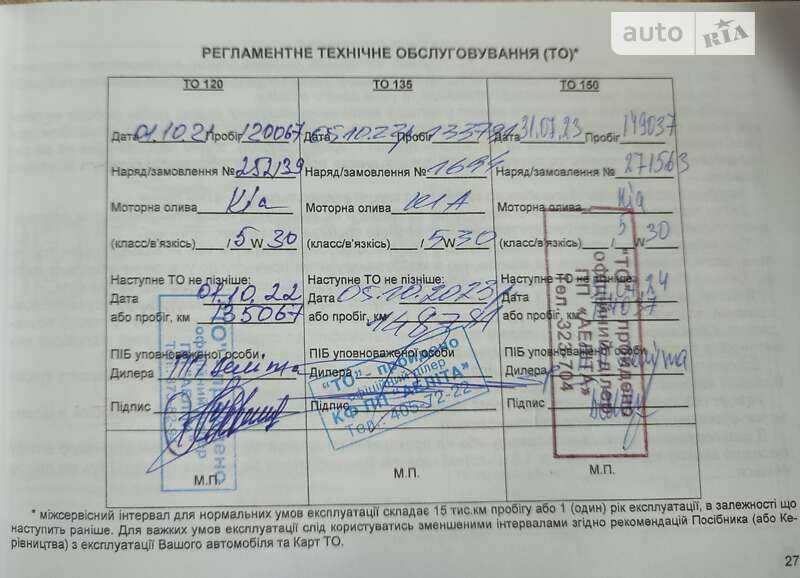 auto RIA
РЕГЛАМЕНТНЕ ТЕХНІЧНЕ ОБСЛУГОВУВАННЯ (ТО)*
ТО 120
Дата 01.10.21 Пробіг 120067
Наряд/замовлення № 252139
Моторна олива Kia
(класс/в'язкість) / 5 W 30
Наступне ТО не пізніше:
Дата 01.10.22
або пробіг, км 135067
ПІБ уповноваженої особи
Дилера
Підпис
М.П.
ТО 135
Дата 05.10.22 Пробіг 133791
Наряд/замовлення № 1694
Моторна олива КІА
(класс/в'язкість) / 5 W 30
Наступне ТО не пізніше:
Дата 05.10.2023
або пробіг, км 148791
ПІБ уповноваженої особи
Дилера
Підпис
"ТО" - пройдено
офіційний дилер
КФ ПП "АЕЛІТА"
Тел.: 405-72-22
М.П.
ТО 150
Дата 31.07.23 Пробіг 149037
Наряд/замовлення № 271563
Моторна олива Kia
(класс/в'язкість) / 5 W 30
Наступне ТО не пізніше:
Дата
або пробіг, км
ПІБ уповноваженої особи
Дилера
Підпис
"ТО" пройдено
офіційний дилер
ПП "АЕЛІТА"
М.П.
* міжсервісний інтервал для нормальних умов експлуатації складає 15 тис.км пробігу або 1 (один) рік експлуатації, в залежності що
наступить раніше. Для важких умов експлуатації слід користуватись зменшеними інтервалами згідно рекомендацій Посібника (або Ке-
рівництва) з експлуатації Вашого автомобіля та Карт ТО.
27